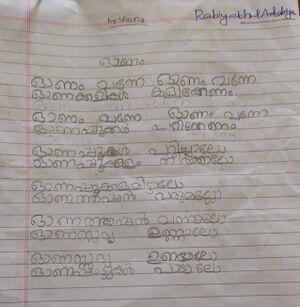 Arshana
Rabiyathul Addabiya
ഓണം
ഓണം വന്നേ ഓണം വന്നേ
ഓണക്കളികൾ കളിക്കേണം
ഓണം വന്നേ ഓണം വന്നേ
ഓണപ്പൂക്കൾ പറിക്കേണം
ഓണപ്പൂക്കൾ പറിച്ചാലോ
ഓണപ്പൂക്കളം തീർത്താലോ
ഓണപ്പൂക്കളമിട്ടാലോ
ഓണത്തപ്പൻ വരുമല്ലോ
ഓണത്തപ്പൻ വന്നാലോ
ഓണസ്സദ്യ ഉണ്ണാലോ
ഓണസ്സദ്യ ഉണ്ടാലോ
ഓണപ്പാട്ടുകൾ പാടാലോ